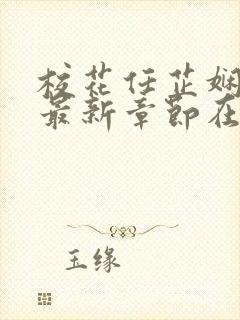 校花任芷娴
最新章节在
玉缘